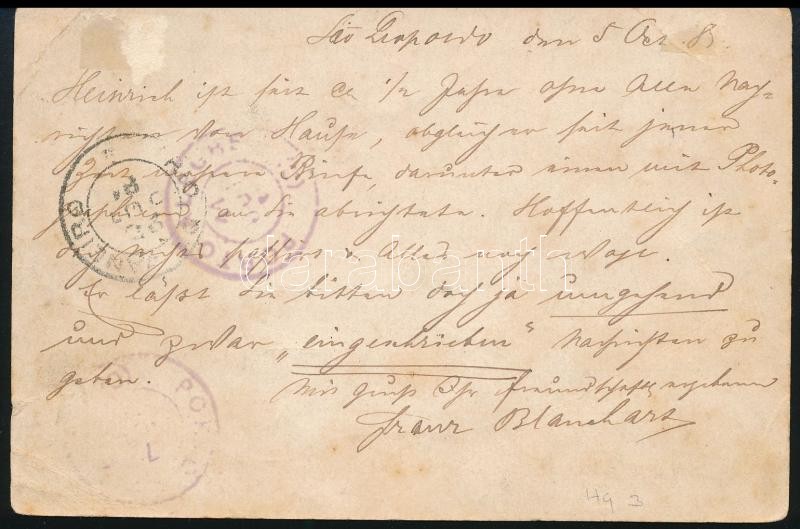 São Leopoldo den 5 Oct. 8
Heinrich ist seit ca 1/2 Jahre ohne Alle Nach=
richten von Hause, obgleich er seit jener
Zeit mehrere Briefe, darunter einen mit Photo-
graphien an Sie abrichtete. Hoffentlich ist
da nichts passirt u. Alles noch wohl.
Er läßt Sie bitten doch ja umgehend
und zwar „eingeschrieben“ Nachrichten zu
geben.
Mit Gruß Ihr freundschaftl. ergebener
Franz Blanchart
RIO DE JANEIRO
darabanth
Hg 3